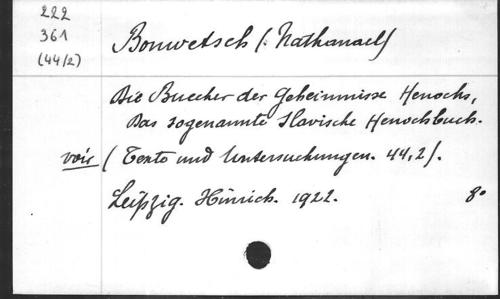 222
361
(44/2)
Bonwetsch (: Nathanael)
Die Buecher der Geheimnisse Henochs,
Das sogenannte Slavische Henochbuch.
voir (Texte und Untersuchungen. 44,2).
Leipzig. Hinrich. 1922. 8°